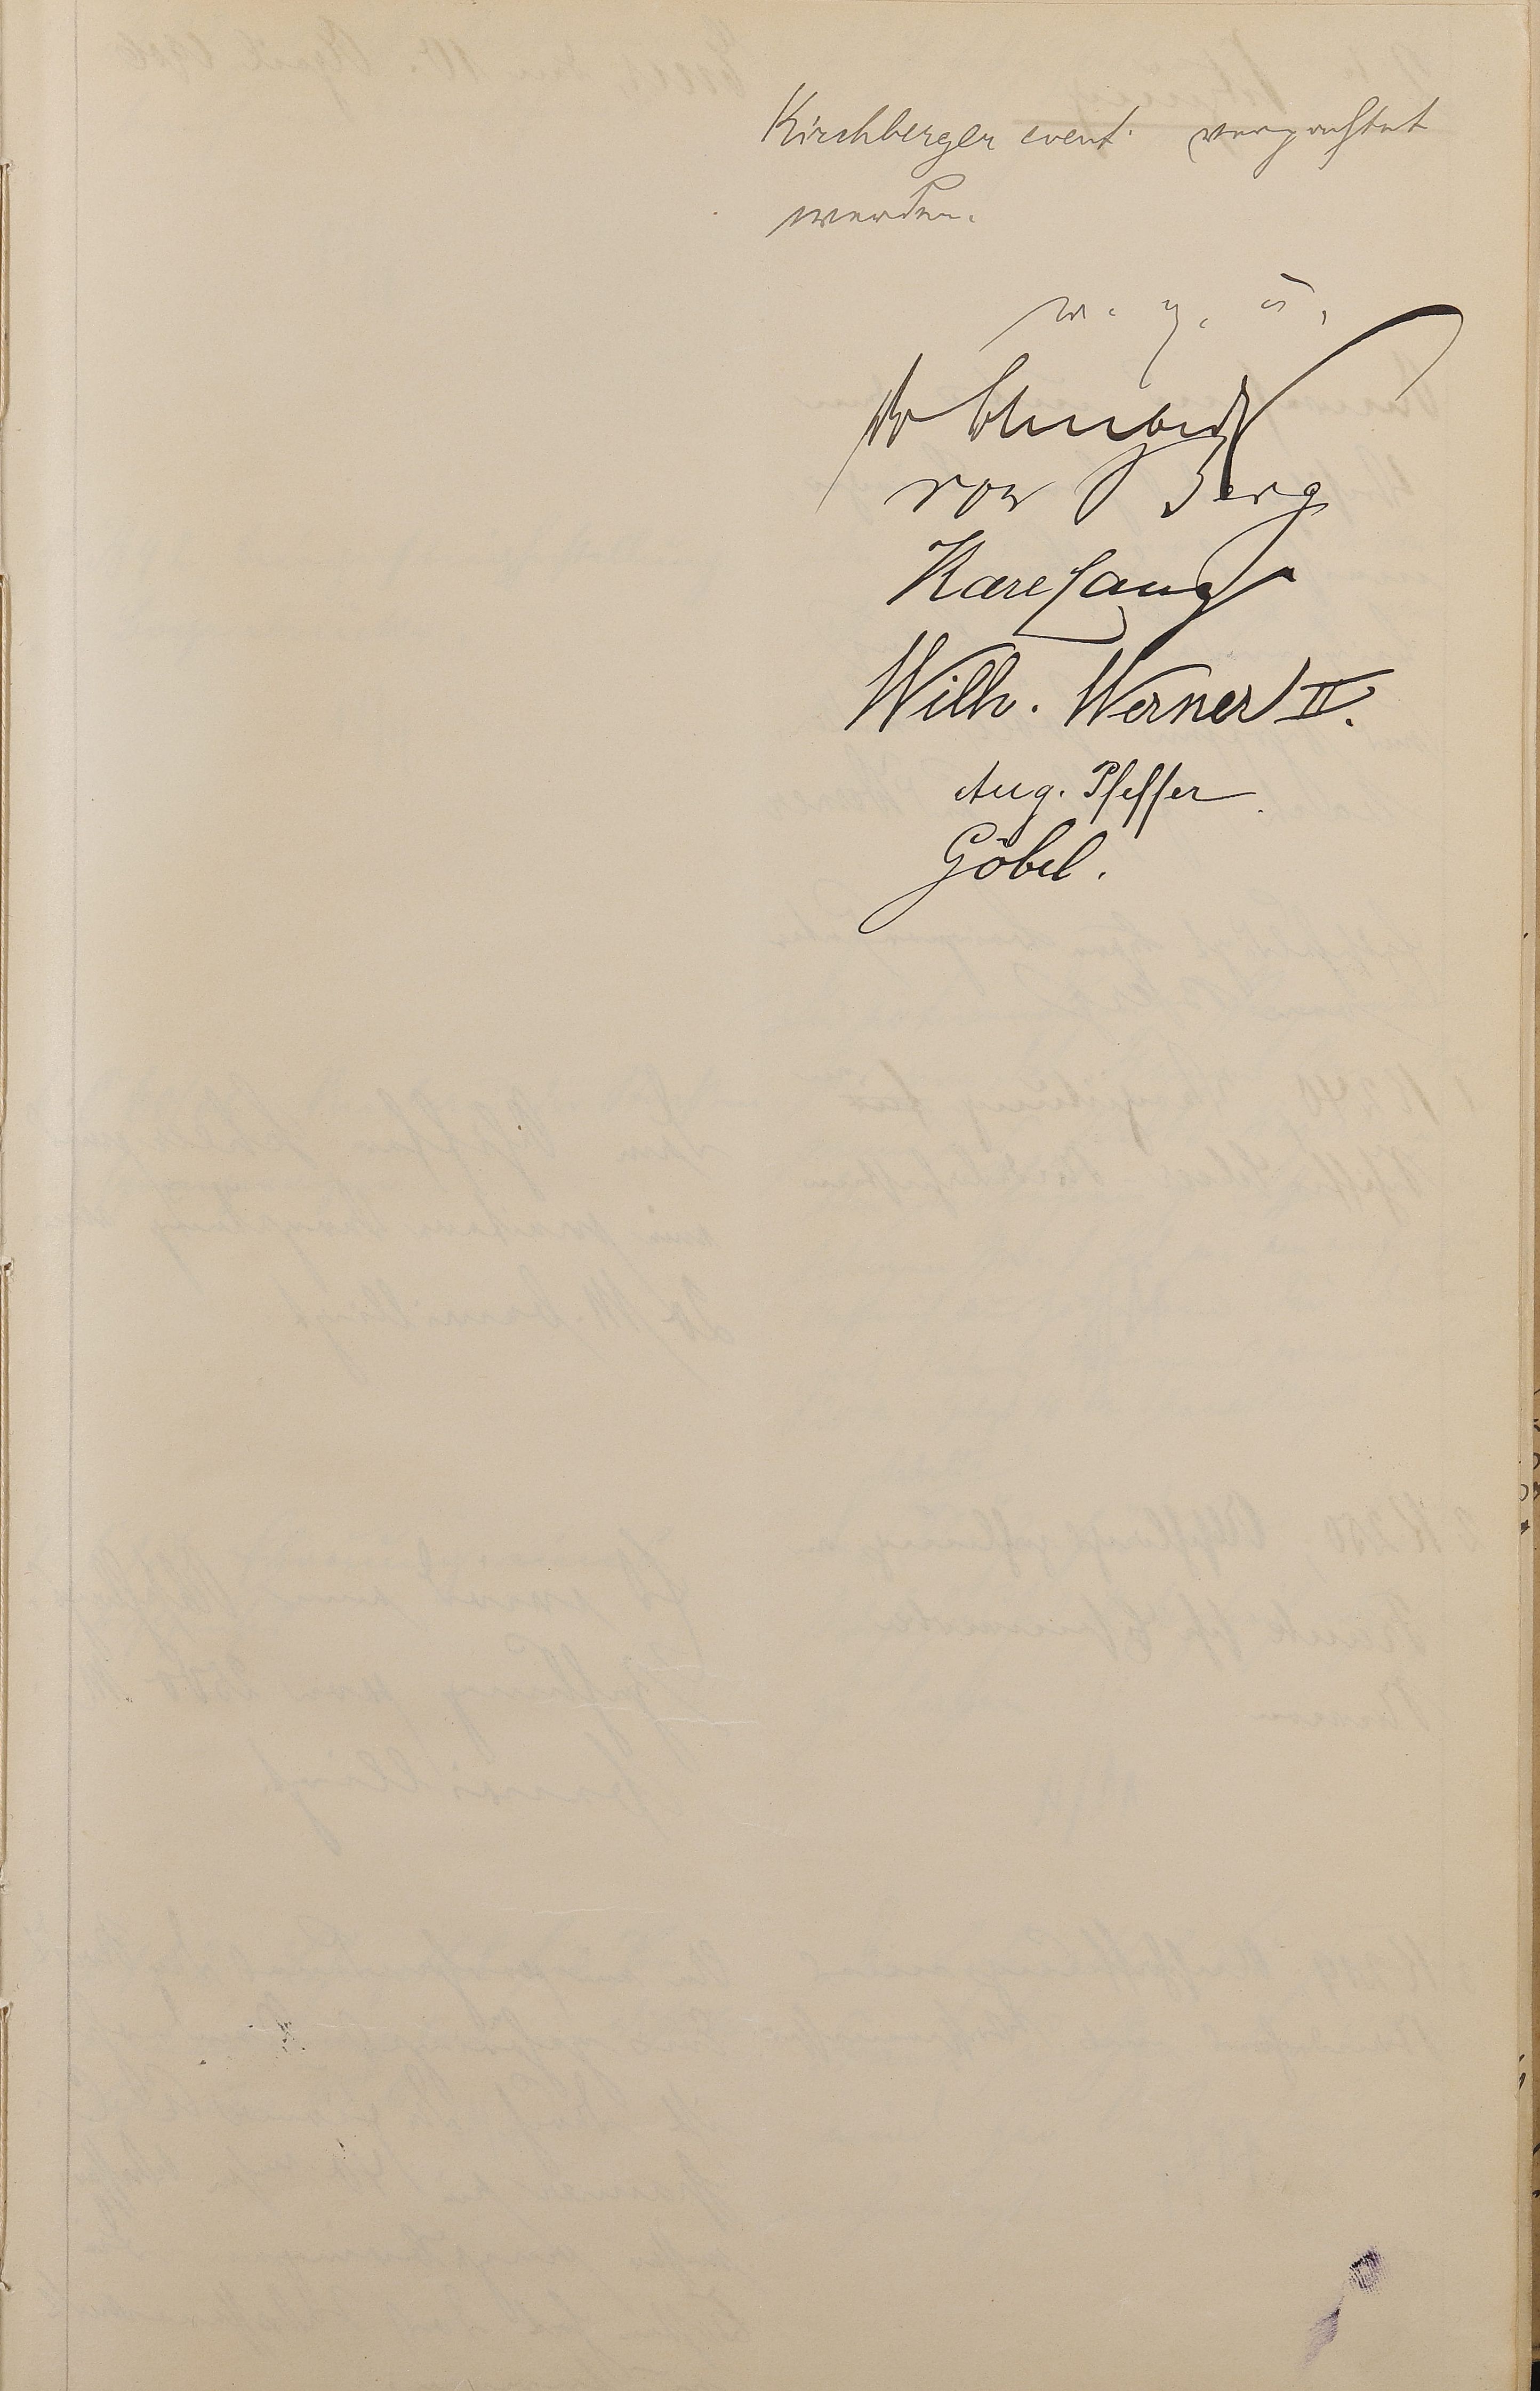 Kirchberger event. verpachtet
werden.
w. g. u.
von Berg
Karl Lang
Wilh. Werner II.
Aug. Pfeffer
Göbel.